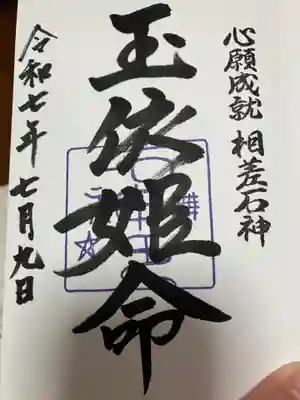 心願成就 相差石神
玉依姫命
令和七年 七月九日